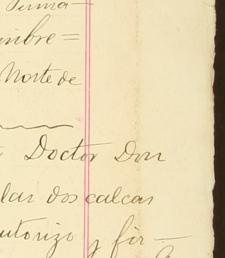 Firma-
imbre=
Norte de
Doctor Don
las dos calcas
autorizo y fir-